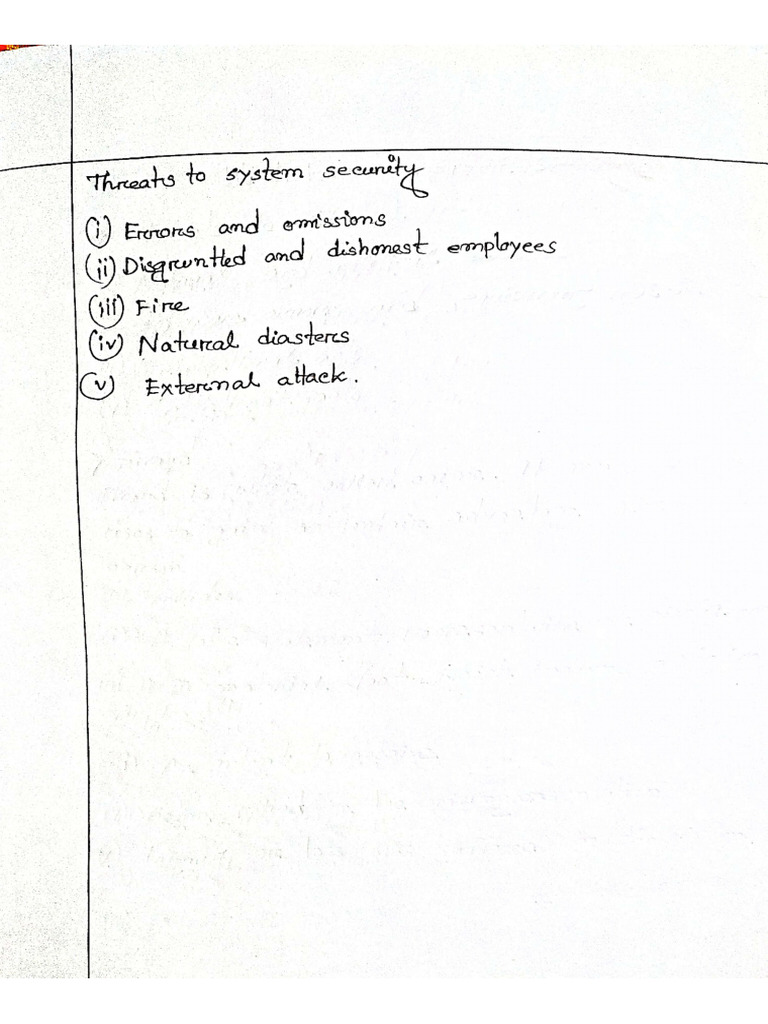 Threats to system security
(i) Errors and omissions
(ii) Disgruntled and dishonest employees
(iii) Fire
(iv) Natural diasters
(v) External attack.